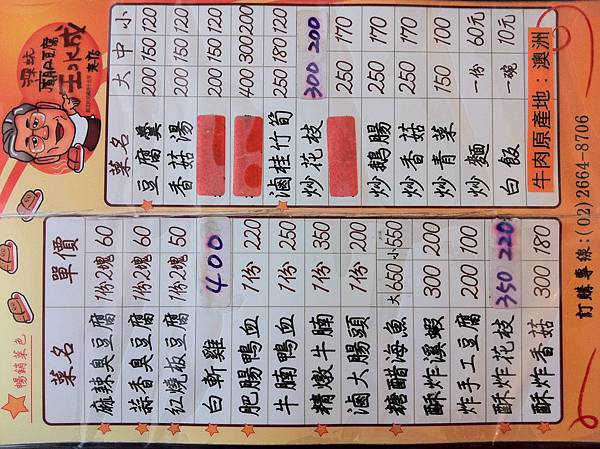 深坑
王水成
本店
暢銷菜色
菜名 單價
麻辣臭豆腐 1份2塊 60
蒜香臭豆腐 1份2塊 60
紅燒板豆腐 1份2塊 50
白斬雞 400
肥腸鴨血 1份 220
牛腩鴨血 1份 250
精燉牛腩 1份 350
滷大腸頭 1份 200
糖醋海魚 大650 小550
酥炸溪蝦 300 200
炸手工豆腐 200 100
酥炸花枝 350 220
酥炸香菇 300 180
菜名 大 中 小
豆腐羹 200 150 120
香菇湯 200 150 120
200 150 120
400 300 200
滷桂竹筍 250 180 120
炒花枝 300 200
250 170
炒鵝腸 250 170
炒香菇 250 170
炒青菜 150 100
炒麵 一份 60元
白飯 一碗 10元
牛肉原產地：澳洲
訂購專線:(02)2664-8706